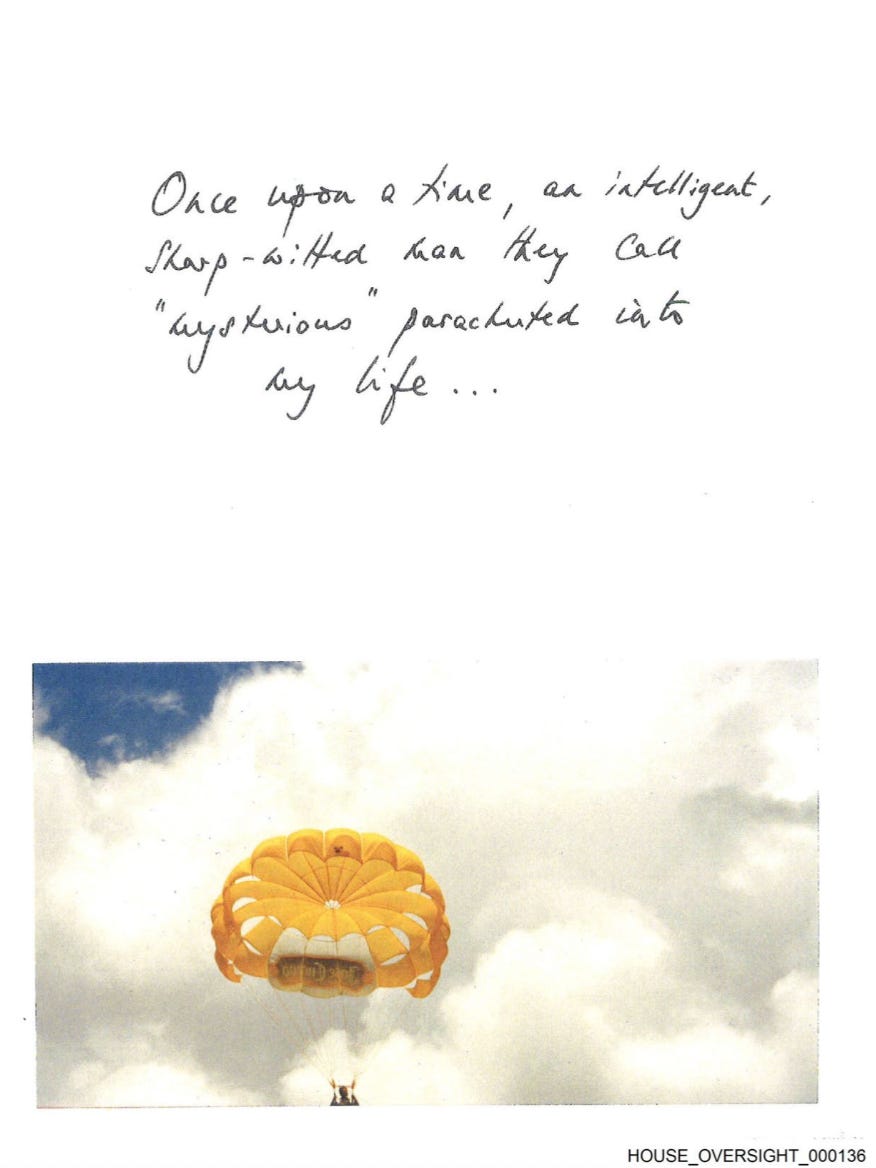 Once upon a time, an intelligent,
sharp-witted man they call
"mysterious" parachuted into
my life...
HOUSE_OVERSIGHT_000136